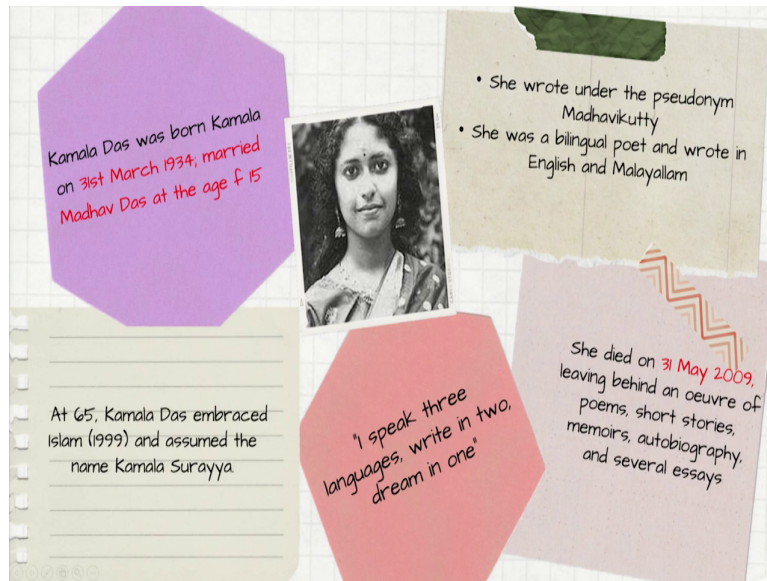 Kamala Das was born Kamala
on 31st March 1934, married
Madhav Das at the age f 15
• She wrote under the pseudonym
Madhavikutty
• She was a bilingual poet and wrote in
English and Malayallam
At 65, Kamala Das embraced
Islam (1999) and assumed the
name Kamala Surayya
"I speak three
languages, write in two,
dream in one"
She died on 31 May 2009,
leaving behind an oeuvre of
poems, short stories,
memoirs, autobiography,
and several essays